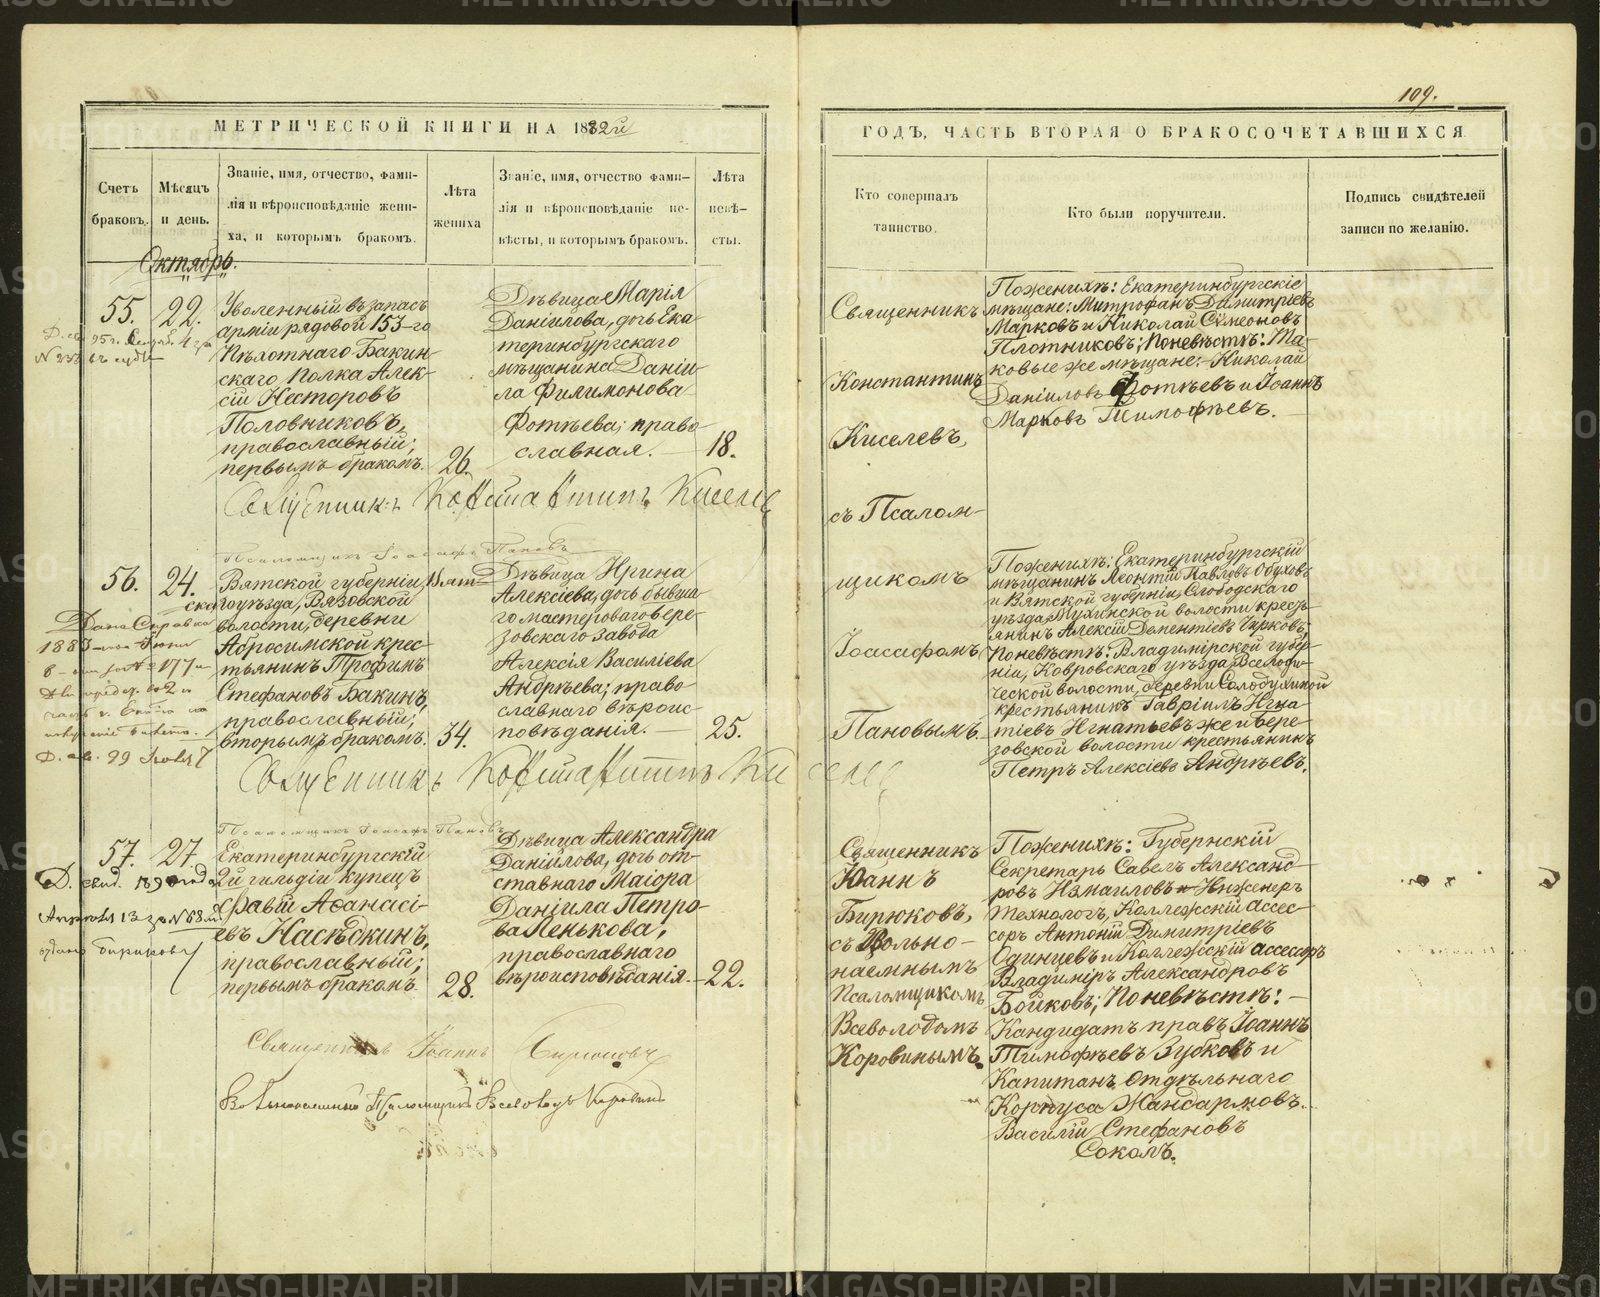 109.
МЕТРИЧЕСКОЙ КНИГИ НА 1882й
ГОДЪ, ЧАСТЬ ВТОРАЯ О БРАКОСОЧЕТАВШИХСЯ
Счетъ браковъ.
Мѣсяцъ и день.
Званіе, имя, отчество, фами-
лія и вѣроисповѣданіе жени-
ха, и которымъ бракомъ.
Лѣта жениха
Званіе, имя, отчество фами-
лія и вѣроисповѣданіе не-
вѣсты, и которымъ бракомъ.
Лѣта невѣ-
сты.
Кто совершалъ таинство.
Кто были поручители.
Подпись свидѣтелей
записи по желанію.
Октябрь.
55.
22.
Уволенный въ запасъ
арміи рядовой 153-го
Пѣхотнаго Бакин-
скаго полка Алек-
сій Несторовъ
Половниковъ,
православный;
первымъ бракомъ.
26.
Дѣвица Марія
Даніилова, дочь Ека-
теринбургскаго
мѣщанина Даніи-
ла Филимонова
Фотѣева; право-
славная.
18.
Священникъ
Константинъ
Киселевъ,
съ Псалом-
щикомъ
Іоасафомъ
Пановымъ.
Поженихѣ: Екатеринбургскіе
мѣщане: Митрофанъ Димитріевъ
Марковъ и Николай Симеоновъ
Плотниковъ; поневѣстѣ: Та-
ковые же мѣщане: Николай
Даніиловъ Фотѣевъ и Іоаннъ
Марковъ Тимофѣевъ.
Священникъ Константинъ Киселев
Псаломщикъ Іоасафъ Пановъ
56.
24.
Вятской губерніи, Вят-
скаго уѣзда, Вязовской
волости, деревни
Абросимской крес-
тьянинъ Трофимъ
Стефановъ Бакинъ,
православный;
вторымъ бракомъ.
34.
Дѣвица Ирина
Алексіева, дочь бывша-
го мастероваго Бере-
зовскаго завода
Алексія Василіева
Андрѣева; право-
славнаго вѣроис-
повѣданія.
25.
Поженихѣ: Екатеринбургскій
мѣщанинъ Леонтій Павловъ Обуховъ
и Вятской губерніи, Слободскаго
уѣзда, Мухинской волости кресть-
янинъ Алексій Дементіевъ Чирковъ;
Поневѣстѣ: Владимірской губер-
ніи, Ковровскаго уѣзда, Всегоди-
ческой волости, деревни Солодухиной
крестьянинъ Гавріилъ Игна-
тіевъ Игнатьевъ же и Бере-
зовской волости крестьянинъ
Петръ Алексіевъ Андрѣевъ.
Дана Справка
Священникъ Константинъ Киселев
Псаломщикъ Іоасафъ Пановъ
57.
27.
Екатеринбургскій
2й гильдіи купецъ
Флавій Аѳанасі-
евъ Насѣдкинъ,
православный;
первымъ бракомъ.
28.
Дѣвица Александра
Даніилова, дочь от-
ставнаго Маіора
Даніила Петро-
ва Пенькова,
православнаго
вѣроисповѣданія.
22.
Священникъ
Іоаннъ
Бирюковъ,
съ Вольно-
наемнымъ
Псаломщикомъ
Всеволодомъ
Коровинымъ.
Поженихѣ: Губернскій
Секретарь Савелъ Александ-
ровъ Измаиловъ и Инженеръ
технологъ, Коллежскій ассес-
соръ Антоній Димитріевъ
Одинцевъ и Коллежскій ассесоръ
Владиміръ Александровъ
Бойковъ; поневѣстѣ:
Кандидатъ правъ Іоаннъ
Тимофѣевъ Зубковъ и
Капитанъ Отдѣльнаго
Корпуса Жандармовъ.
Василій Стефановъ
Соколъ.
Священникъ Іоаннъ Бирюковъ
Вольнонаемный Псаломщикъ Всеволодъ Коровинъ
METRIKI.GASO-URAL.RU